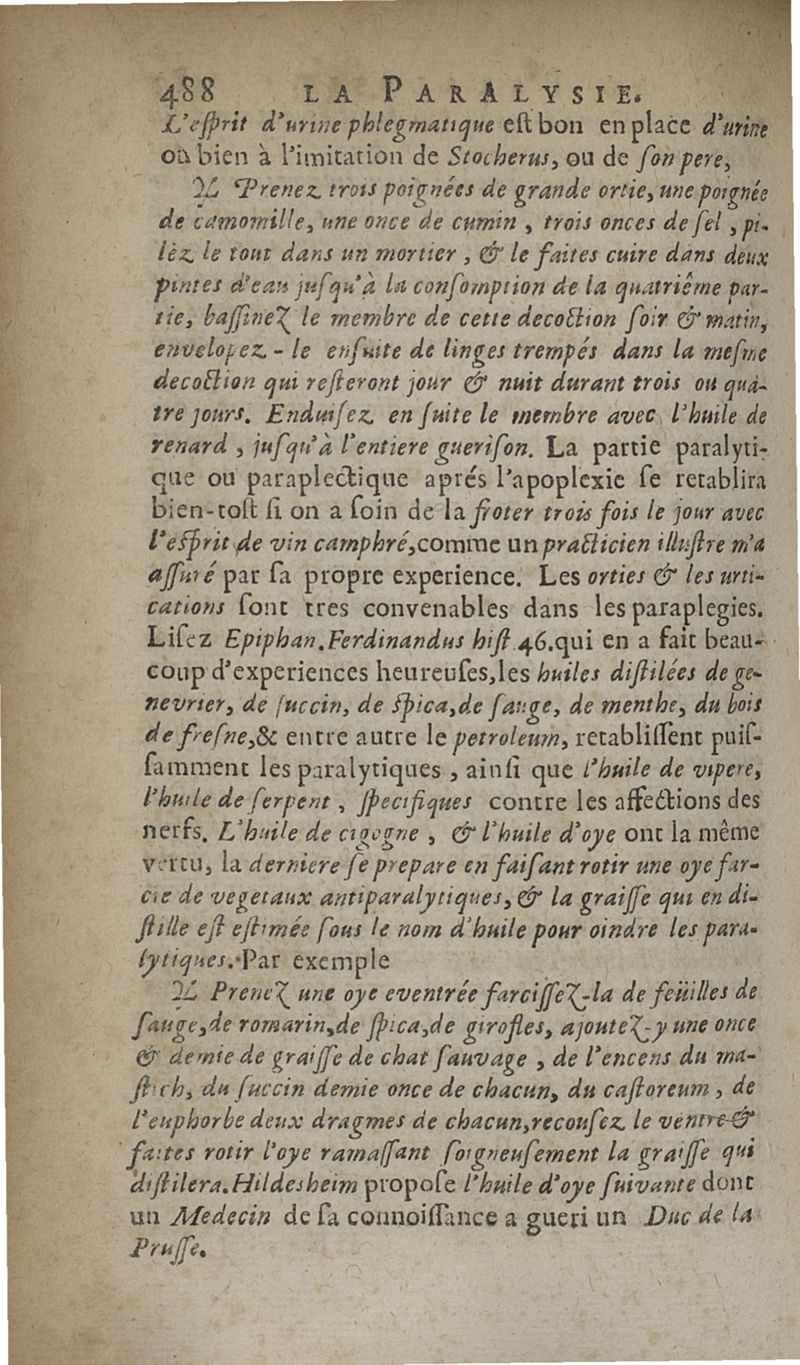 488 LA PARALYSIE.
L'eſprit d'urine phlegmatique eſt bon en place d'urine
ou bien à l'imitation de Stocherus, ou de ſon pere,
♃ Prenez trois poignées de grande ortie, une poignée
de camomille, une once de cumin , trois onces de ſel , pi-
lèz le tout dans un mortier , & le faites cuire dans deux
pintes d'eau juſqu'à la conſomption de la quatriême par-
tie, baſſinez le membre de cette decoction ſoir & matin,
envelopez - le enſuite de linges trempés dans la meſme
decoction qui reſteront jour & nuit durant trois ou qua-
tre jours. Enduiſez en ſuite le membre avec l'huile de
renard , juſqu'à l'entiere gueriſon. La partie paralyti-
que ou paraplectique aprés l'apoplexie ſe retablira
bien-toſt ſi on a ſoin de la froter trois fois le jour avec
l'eſprit de vin camphré,comme un practicien illuſtre m'a
aſſuré par ſa propre experience. Les orties & les urti-
cations ſont tres convenables dans les paraplegies.
Liſez Epiphan.Ferdinandus hiſt.46.qui en a fait beau-
coup d'experiences heureuſes,les huiles diſtilées de ge-
nevrier, de ſuccin, de ſpica,de ſauge, de menthe, du bois
de freſne,& entre autre le petroleum, retabliſſent puiſ-
ſamment les paralytiques , ainſi que l'huile de vipere,
l'huile de ſerpent , ſpecifiques contre les affections des
nerfs. L'huile de cigogne , & l'huile d'oye ont la même
vertu, la derniere ſe prepare en faiſant rotir une oye far-
cie de vegetaux antiparalytiques, & la graiſſe qui en di-
ſtille eſt eſtimée ſous le nom d'huile pour oindre les para-
lytiques. Par exemple
♃ Prenez une oye eventrée farciſſez-la de feüilles de
ſauge,de romarin,de ſpica,de girofles, ajoutez-y une once
& demie de graiſſe de chat ſauvage , de l'encens du ma-
ſtich, du ſuccin demie once de chacun, du caſtoreum , de
l'euphorbe deux dragmes de chacun,recouſez le ventre &
faites rotir l'oye ramaſſant ſoigneuſement la graiſſe qui
diſtilera. Hildesheim propoſe l'huile d'oye ſuivante dont
un Medecin de ſa connoiſſance a gueri un Duc de la
Pruſſe.